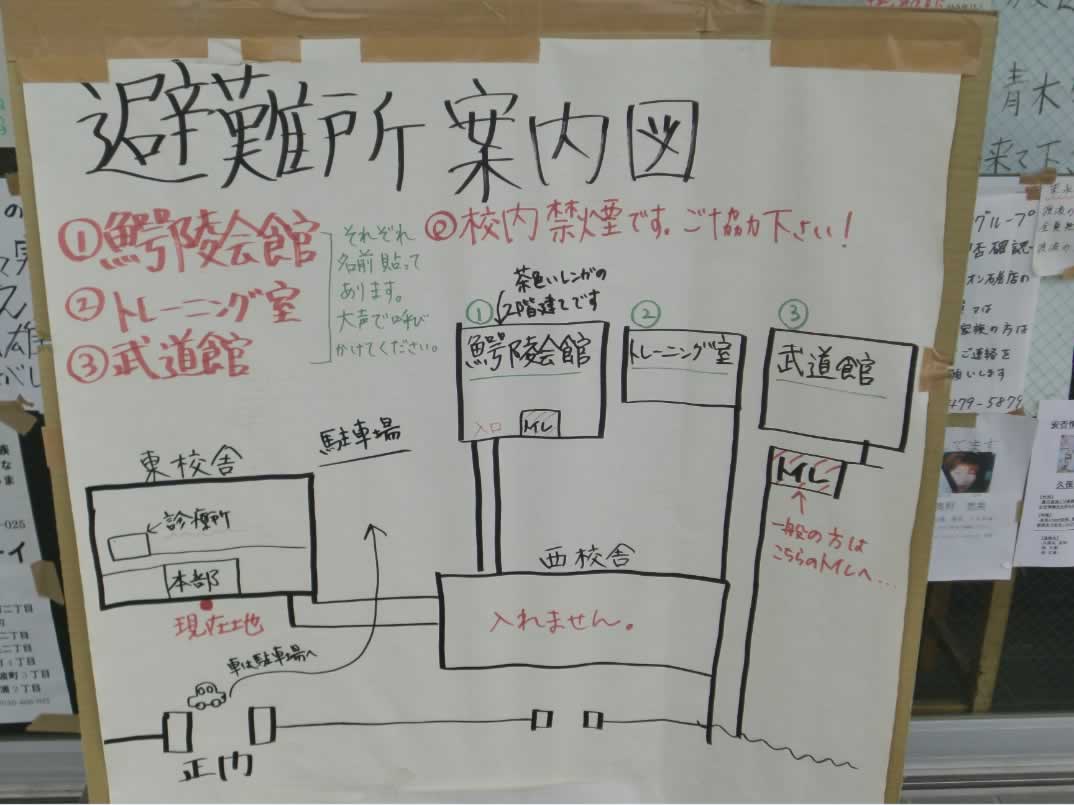 避難所 案内図
①鰐陵会館
②トレーニング室
③武道館
それぞれ
名前貼って
あります。
大声で呼び
かけてください。
@校内禁煙です。ご協力下さい！
茶色いレンガの
2階建てです
①
鰐陵会館
入口
トイレ
②
トレーニング室
③
武道館
トイレ
一般の方は
こちらのトイレへ…
駐車場
東校舎
診療所
本部
現在地
西校舎
入れません。
車は駐車場へ
正門
青木
来て下
グループ
否確認
オン石巻店の
家族の方は
ご連絡を
願いします
479-5879